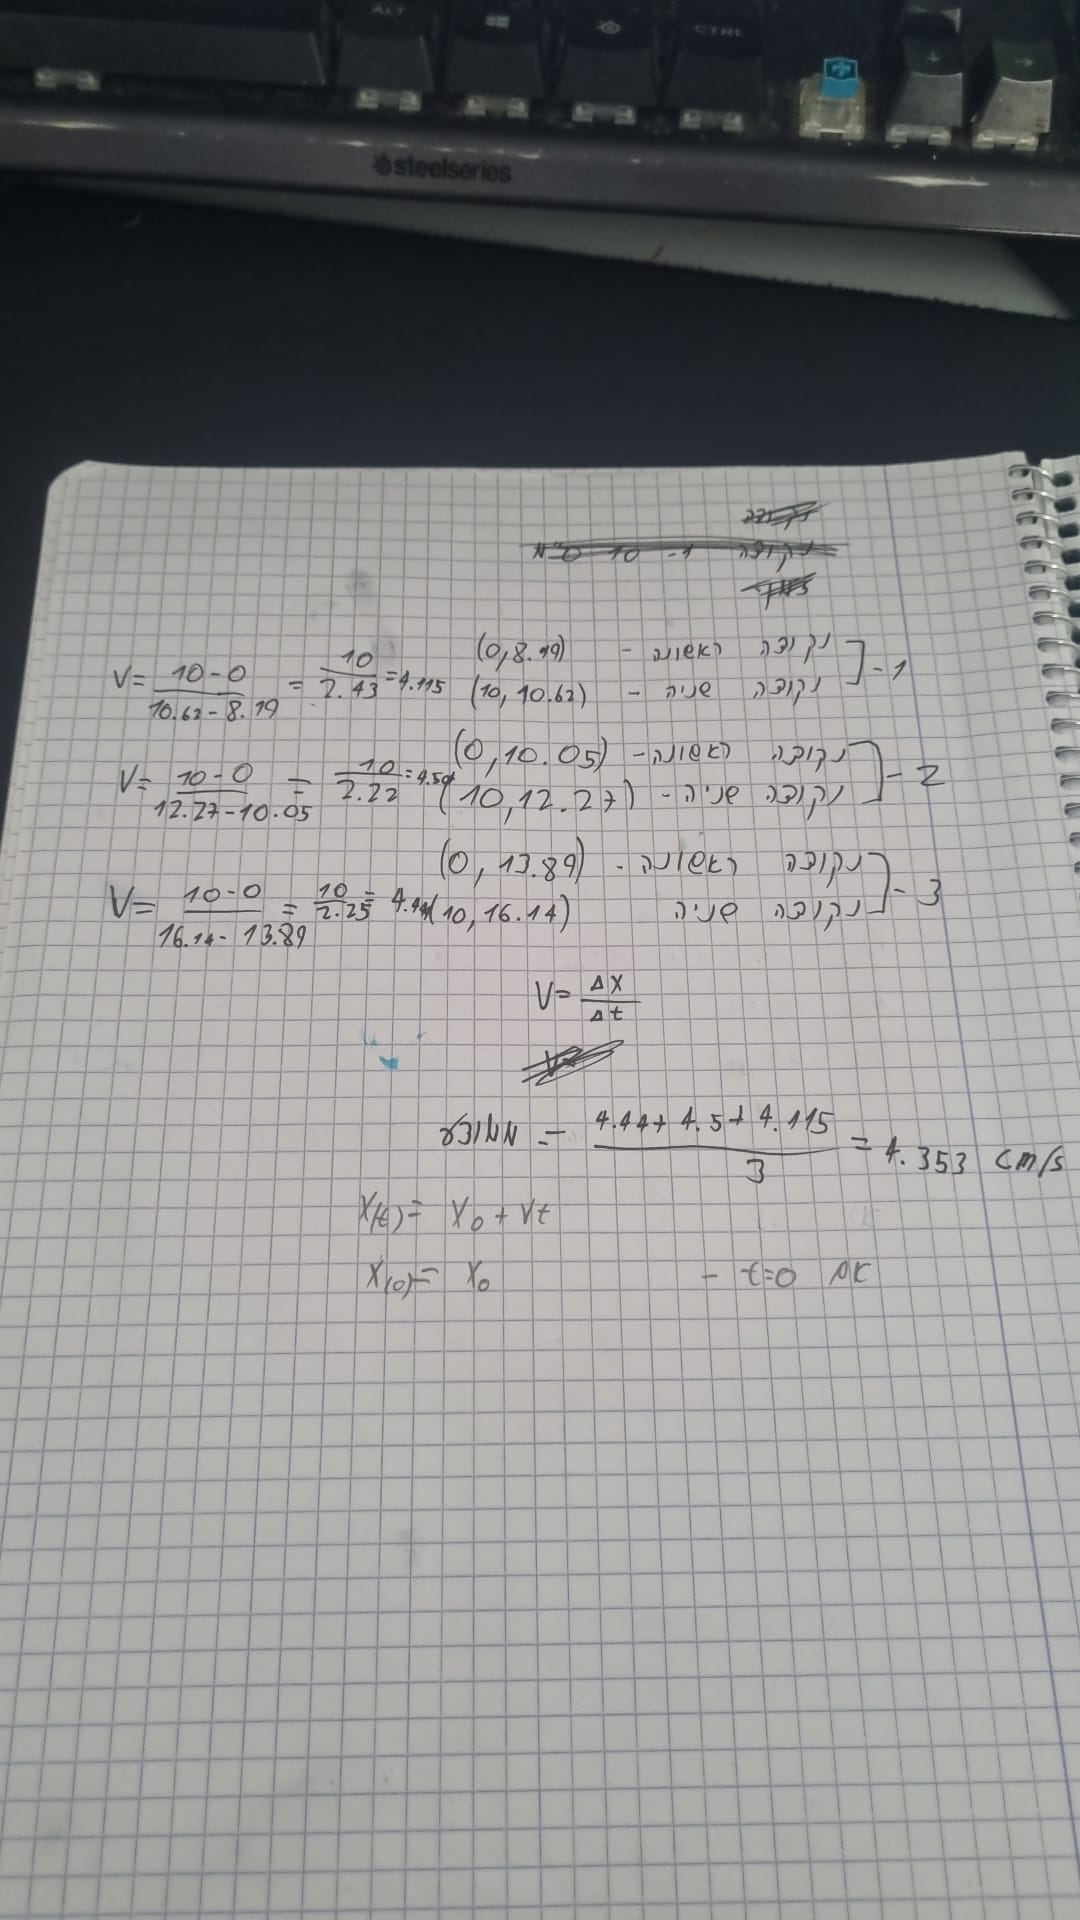 ALT
CTRL
steelseries
נקודה
נקודה 1- 10 0=א
נקודה ראשונה - (0,8.19)
1 -
נקודה שניה - (10, 10.62)
V= 10-0 / 10.62-8.19 = 10 / 2.43 =4.115
נקודה ראשונה - (0,10.05)
2 -
נקודה שניה - (10,12.27)
V= 10-0 / 12.27-10.05 = 10 / 2.22 =4.504
נקודה ראשונה - (0, 13.89)
3 -
נקודה שניה (10, 16.14)
V= 10-0 / 16.14-13.89 = 10 / 2.25 = 4.44
V= ΔX / Δt
V=
ממוצע - 4.44+4.5+4.115 / 3 = 4.353 cm/s
X(t)= X0+Vt
אם t=0 - X(0)= X0